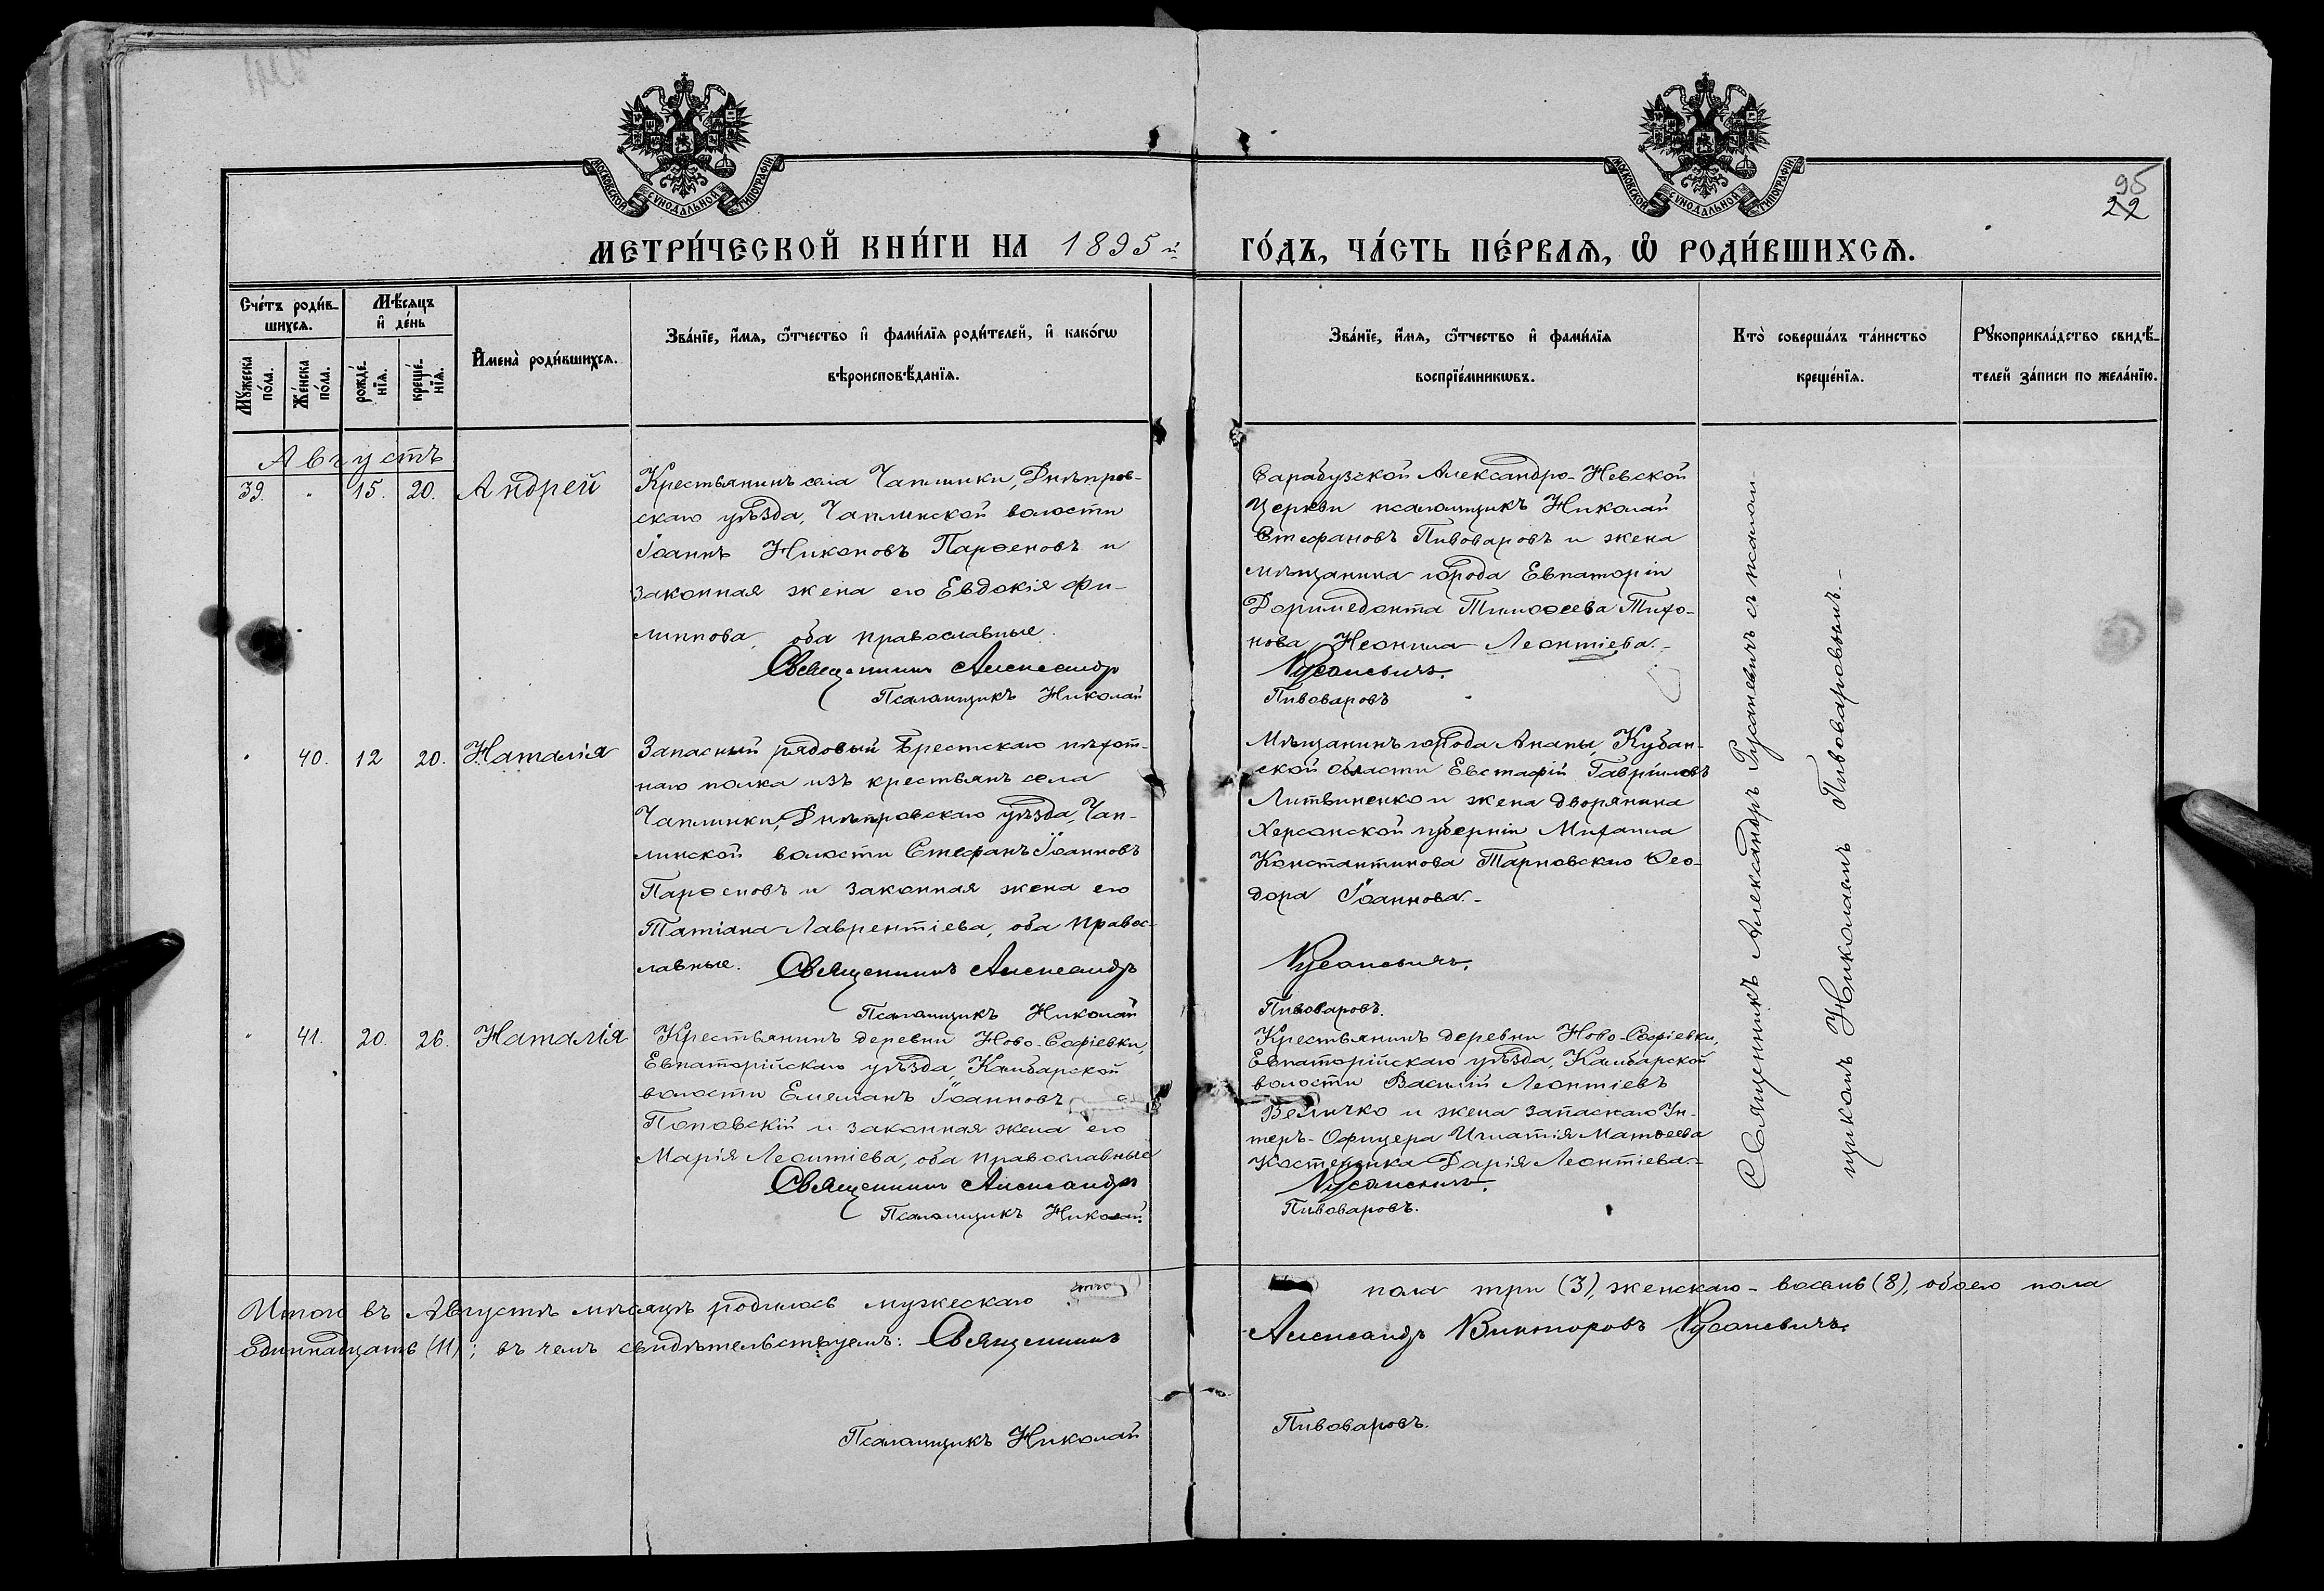 МОСКОВСКОЙ СѴНОДАЛЬНОЙ ТИПОГРАФІИ
МОСКОВСКОЙ СѴНОДАЛЬНОЙ ТИПОГРАФІИ
95
22
МЕТРИ́ЧЕСКОЙ КНИ́ГИ НА 1895 й
ГО́ДЪ, ЧА́СТЬ ПЕ́РВАѦ, Ѡ҆ РОДИ́ВШИХСѦ.
Сче́тъ роди́в-
шихсѧ.
Мꙋ́жеска
по́ла.
Же́нска
по́ла.
Мѣ́сѧцъ
и҆ де́нь
рожде́-
нїѧ.
креще́-
нїѧ.
И҆мена̀ роди́вшихсѧ.
Зва́нїе, и҆́мѧ, ѻ҆́тчество и҆ фами́лїѧ роди́телей, и҆ како́гѡ
вѣроисповѣ́данїѧ.
Зва́нїе, и҆́мѧ, ѻ҆́тчество и҆ фами́лїѧ
воспрїе́мникѡвъ.
Кто̀ соверша́лъ та́инство
креще́нїѧ.
Рꙋкоприкла́дство свидѣ́-
телей за́писи по жела́нїю.
Августъ
39. " 15. 20. Андрей
Крестьянинъ села Чаплинки, Днѣпров-
скаго уѣзда, Чаплинской волости
Іоаннъ Никоновъ Парѳеновъ и
законная жена его Евдокія Фи-
липпова, оба православные.
Священникъ Александр
Псаломщикъ Николай
Сарабузской Александро-Невской
Церкви псаломщикъ Николай
Стефановъ Пивоваровъ и жена
мѣщанина города Евпаторіи
Доримедонта Тимоѳеева Тихо-
нова Неонила Леонтіева.-
Русаневичъ.
Пивоваровъ
" 40. 12 20. Наталія
Запасный рядовый Брестскаго пѣхот-
наго полка изъ крестьянъ села
Чаплинки, Днѣпровскаго уѣзда, Чап-
линской волости Стефанъ Іоанновъ
Парѳеновъ и законная жена его
Татіана Лаврентіева, оба правос-
лавные. Священникъ Александръ
Псаломщикъ Николай
Мѣщанинъ города Анапы, Кубан-
ской области Евстафій Гавріиловъ
Литвиненко и жена дворянина
Херсонской губерніи Михаила
Константинова Тарновскаго Ѳео-
дора Іоаннова.-
Русаневичъ.
Пивоваровъ.
" 41. 20. 26. Наталія
Крестьянинъ деревни Ново-Софіевки,
Евпаторійскаго уѣзда, Камбарской
волости Емеліанъ Іоанновъ
Поповскій и законная жена его
Марія Леонтіева, оба православные
Священникъ Александръ
Псаломщикъ Николай
Крестьянинъ деревни Ново-Софіевки,
Евпаторійскаго уѣзда, Камбарской
волости Василій Леонтіевъ
Величко и жена запаснаго Ун-
теръ-Офицера Игнатія Матѳеева
Костенка Дарія Леонтіева.-
Русаневичъ.
Пивоваровъ.
Священникъ Александръ Русаневичъ съ псалом-
щикомъ Николаемъ Пивоваровымъ.-
Итого въ Августѣ мѣсяцѣ родилось мужескаго
пола три (3), женскаго - восемь (8), обоего пола
одиннадцать (11); въ чемъ свидѣтельствуемъ: Священникъ
Александръ Викторовъ Русаневичъ.
Псаломщикъ Николай
Пивоваровъ.